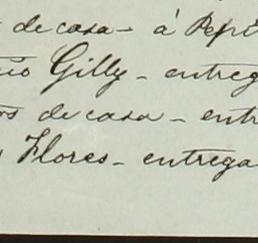 de casa - á Pepi
cio Gilly - entreg
os de casa - entr
Flores - entrega